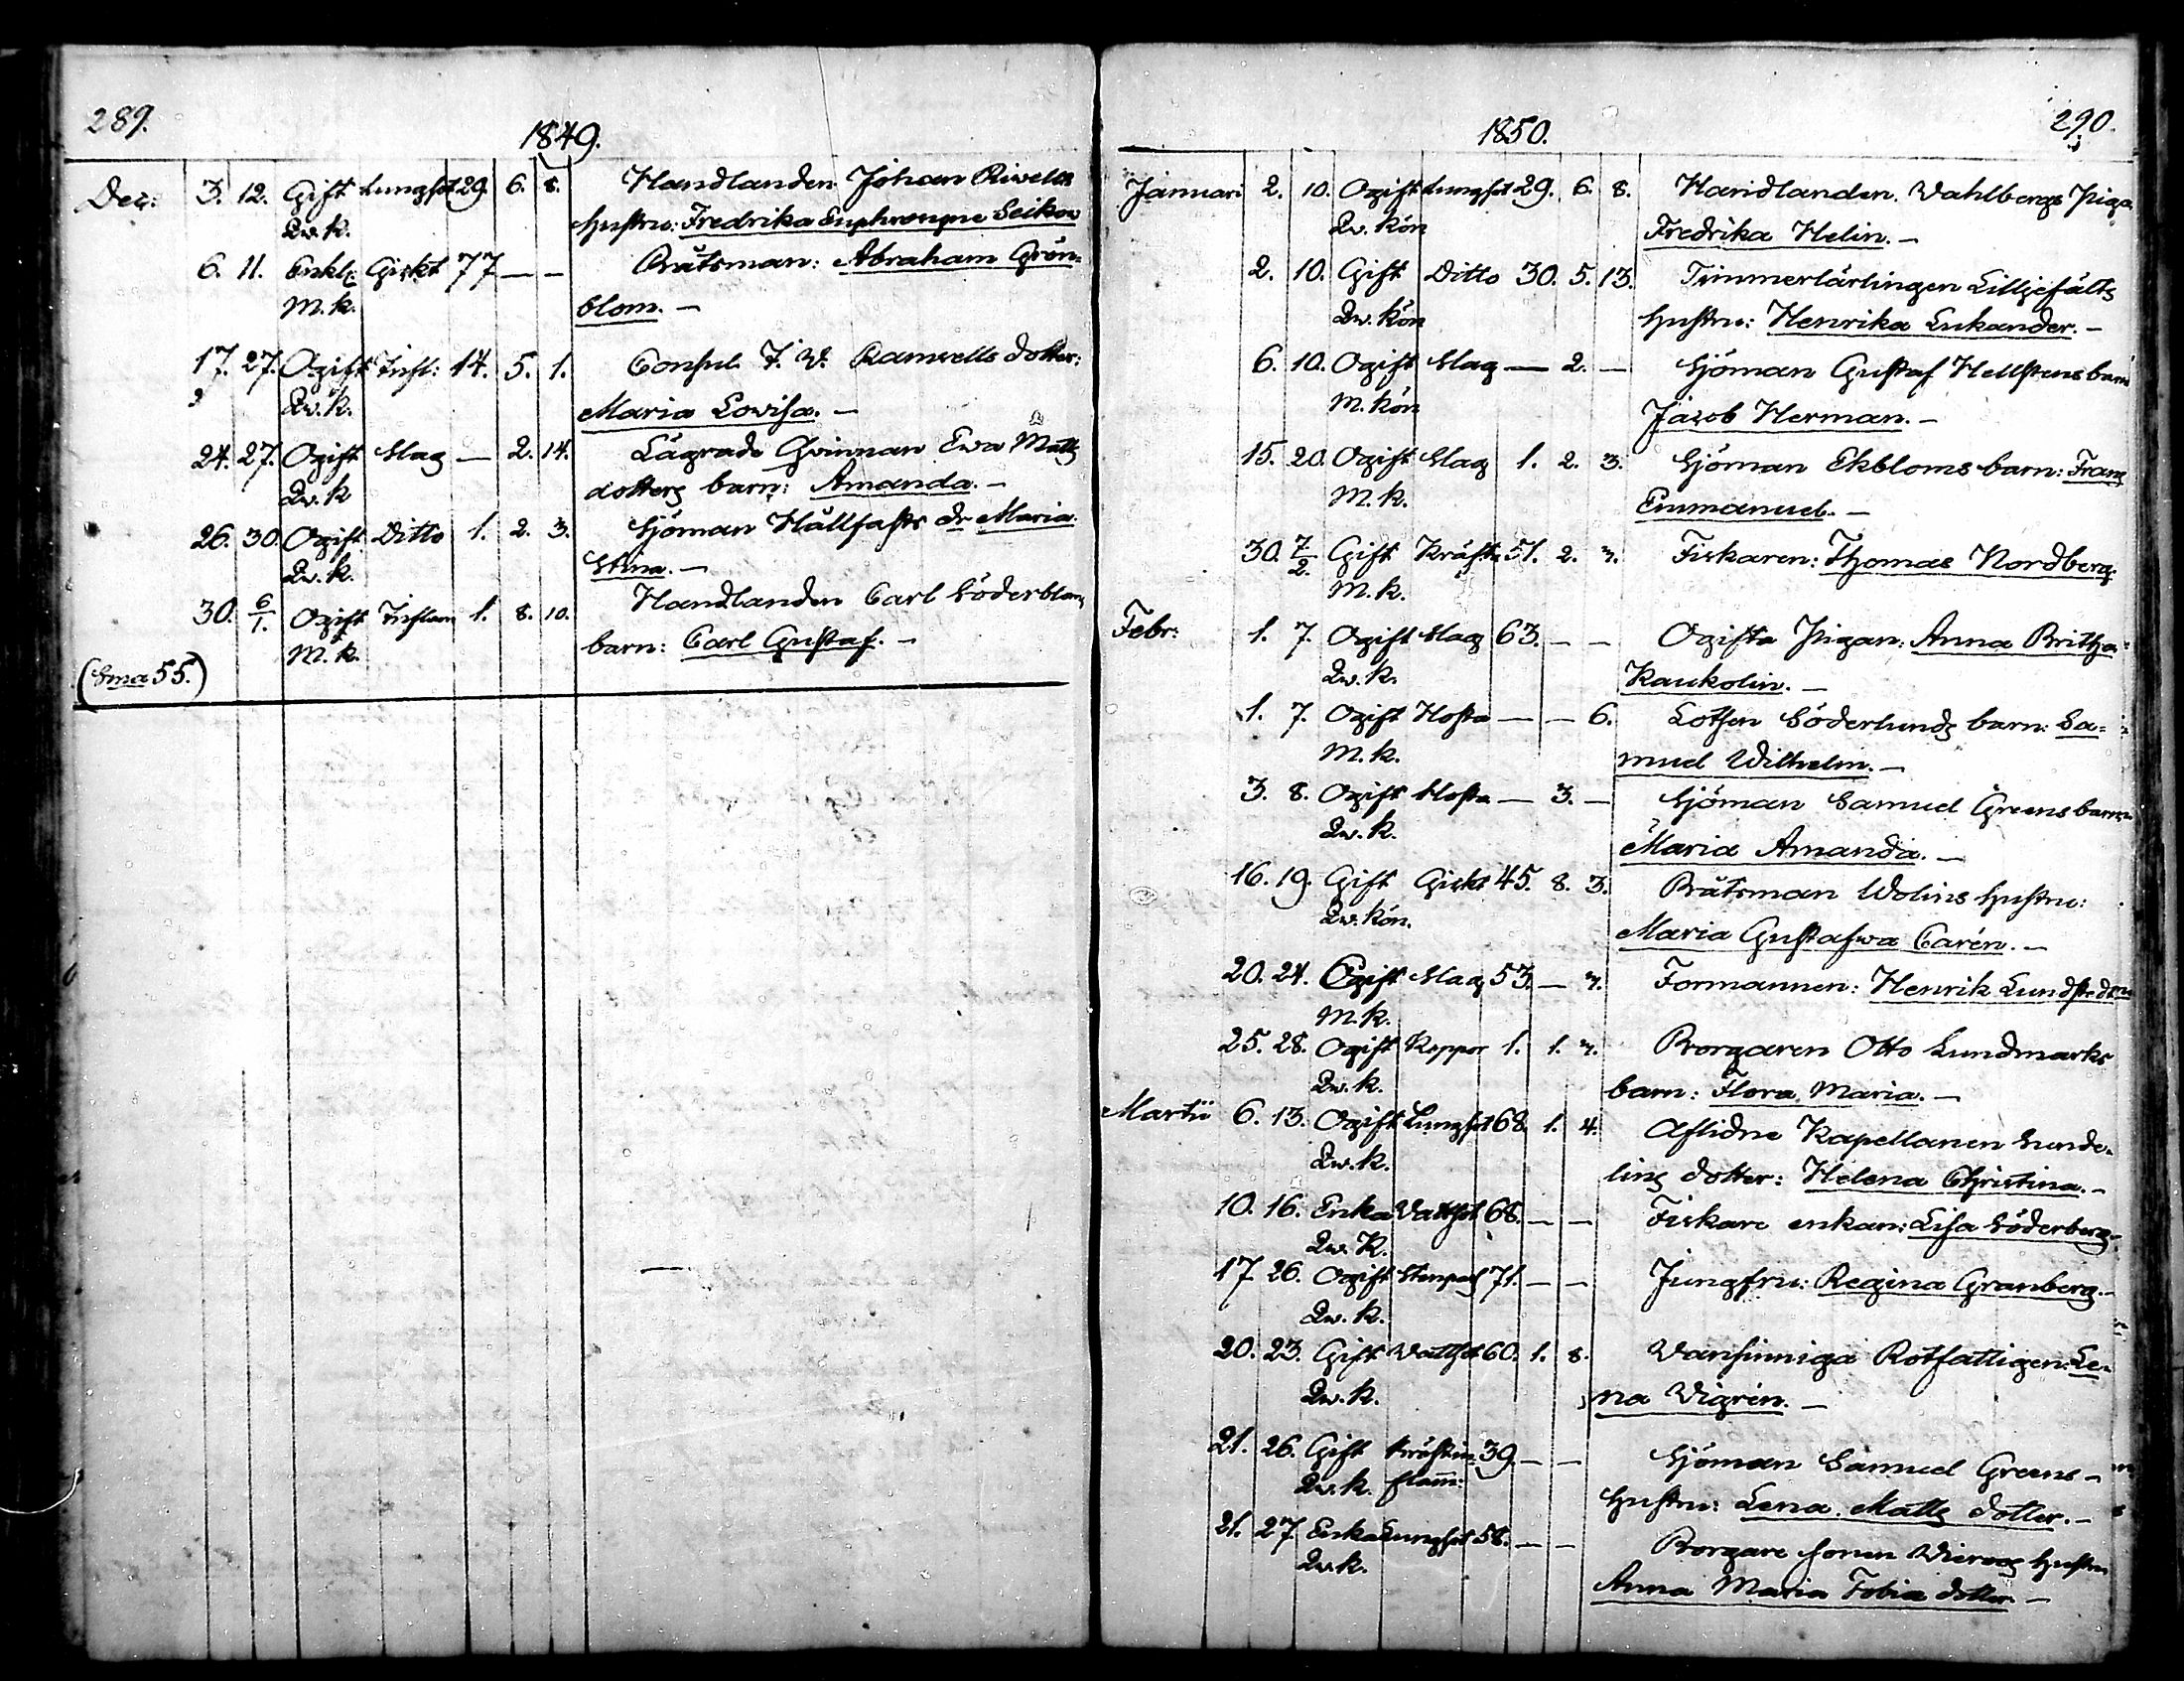 289.
1849.
Dec: 3. 12. Gift Lungsot 29. 6. 8. Handlanden Johan Riwells
Qw. k. hustru: Fredrika Euphrosyne Seikow
6. 11. Enkl: Gickt 77 — — Båtsman: Abraham Grön=
M. k. blom. —
17. 27. Ogift Infl: 14. 5. 1. Consul. J. W. Ramsells dotter:
Qw. k. Maria Lovisa. —
24. 27. Ogift Slag — 2. 14. Lägrade Qvinnan Ewa Matts
Qw. k dotters barn: Amanda. —
26. 30. Ogift Ditto 1. 2. 3. Sjöman Hållfasts dr Maria
Qw. k. Stina. —
30. 6/1. Ogift Inflam 1. 8. 10. Handlanden Carl Söderbloms
M. k. barn: Carl Gustaf. —
(Sma 55.)
290.
1850.
Januari 2. 10. Ogift Lungsot 29. 6. 8. Handlanden Wahlbergs Piga
Qv. kön Fredrika Helin. —
2. 10. Gift Ditto 30. 5. 13. Timmerlärlingen Liljefälts
Qw. kön hustru: Henrika Lukander. —
6. 10. Ogift Slag — 2. — Sjöman Gustaf Hellstens barn
M. kön Jacob Herman. —
15. 20. Ogift Slag 1. 2. 3. Sjöman Ekbloms barn: Frans
M. k. Emmanuel. —
30. 7/2. Gift Kräfta 51. 2. 7. Fiskaren: Thomas Nordberg.
M. k.
Febr: 1. 7. Ogift Slag 63. — — Ogifta Pigan: Anna Britha
Qw. k. Kaukolin. —
1. 7. Ogift Hosta — — 6. Lotsen Söderlunds barn: Sa=
M. k. muel Wilhelm. —
3. 8. Ogift Hosta — 3. — Sjöman Samuel Greens barn
Qw. k. Maria Amanda. —
16. 19. Gift Gickt 45. 8. 3. Båtsman Wolins hustru:
Qw. kön. Maria Gustafwa Carén. —
20. 24. Ogift Slag 53. — 7. Formannen: Henrik Lundstedt
M. k.
25. 28. Ogift Koppor 1. 1. 7. Borgaren Otto Lundmarks
Qw. k. barn: Flora Maria. —
Martii 6. 13. Ogift Lungsot 68. 1. 4. Aflidne Kapellanen Sunde-
Qw. k. lins dotter: Helena Christina. —
10. 16. Enka Vattsot 68. — — Fiskare enkan: Lisa Söderberg
Qw. k.
17. 26. Ogift Stenpass 71. — — Jungfru: Regina Granberg. —
Qw. k.
20. 23. Gift Vattsot 60. 1. 8. Vansinniga Rotfattigen: Le-
Qw. k. na Vigrén. —
21. 26. Gift 39. — — Sjöman Samuel Greens —
Qw. k. hustru: Lena Matts dotter. —
21. 27. Enka Lungsot 58. — — Borgare sonen hustru
Qw. k. Anna Maria Tobia dotter. —